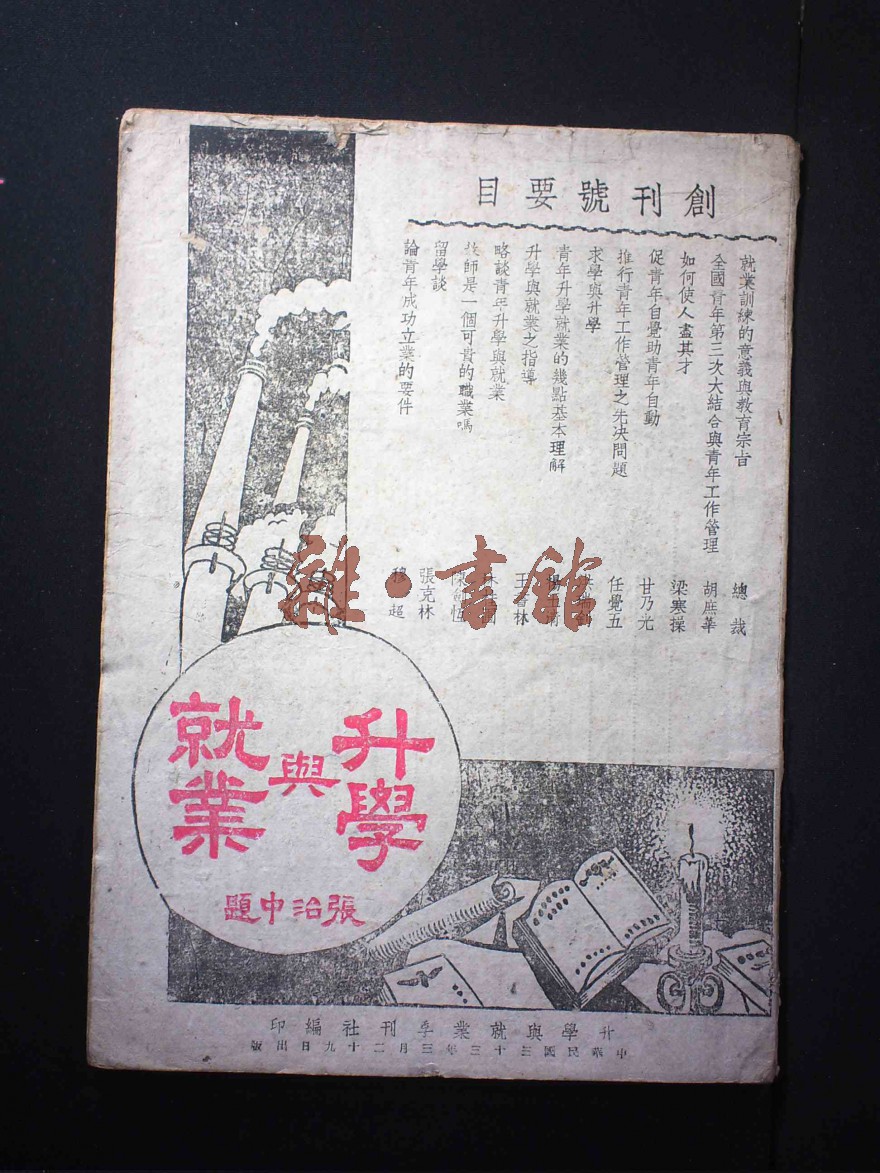 創刊號要目
就業訓練的意義與教育宗旨 總裁
全國青年第三次大結合與青年工作管理 胡庶華
如何使人盡其才 梁寒操
促青年自覺助青年自動 甘乃光
推行青年工作管理之先決問題 任覺五
求學與升學
青年升學就業的幾點基本理解
升學與就業之指導 王書林
略談青年升學與就業
技師是一個可貴的職業嗎
留學談 張克林
論青年成功立業的要件 穆超
雜·書館
升學
與
就業
張治中題
升學與就業季刊社編印
中華民國三十三年三月二十九日出版